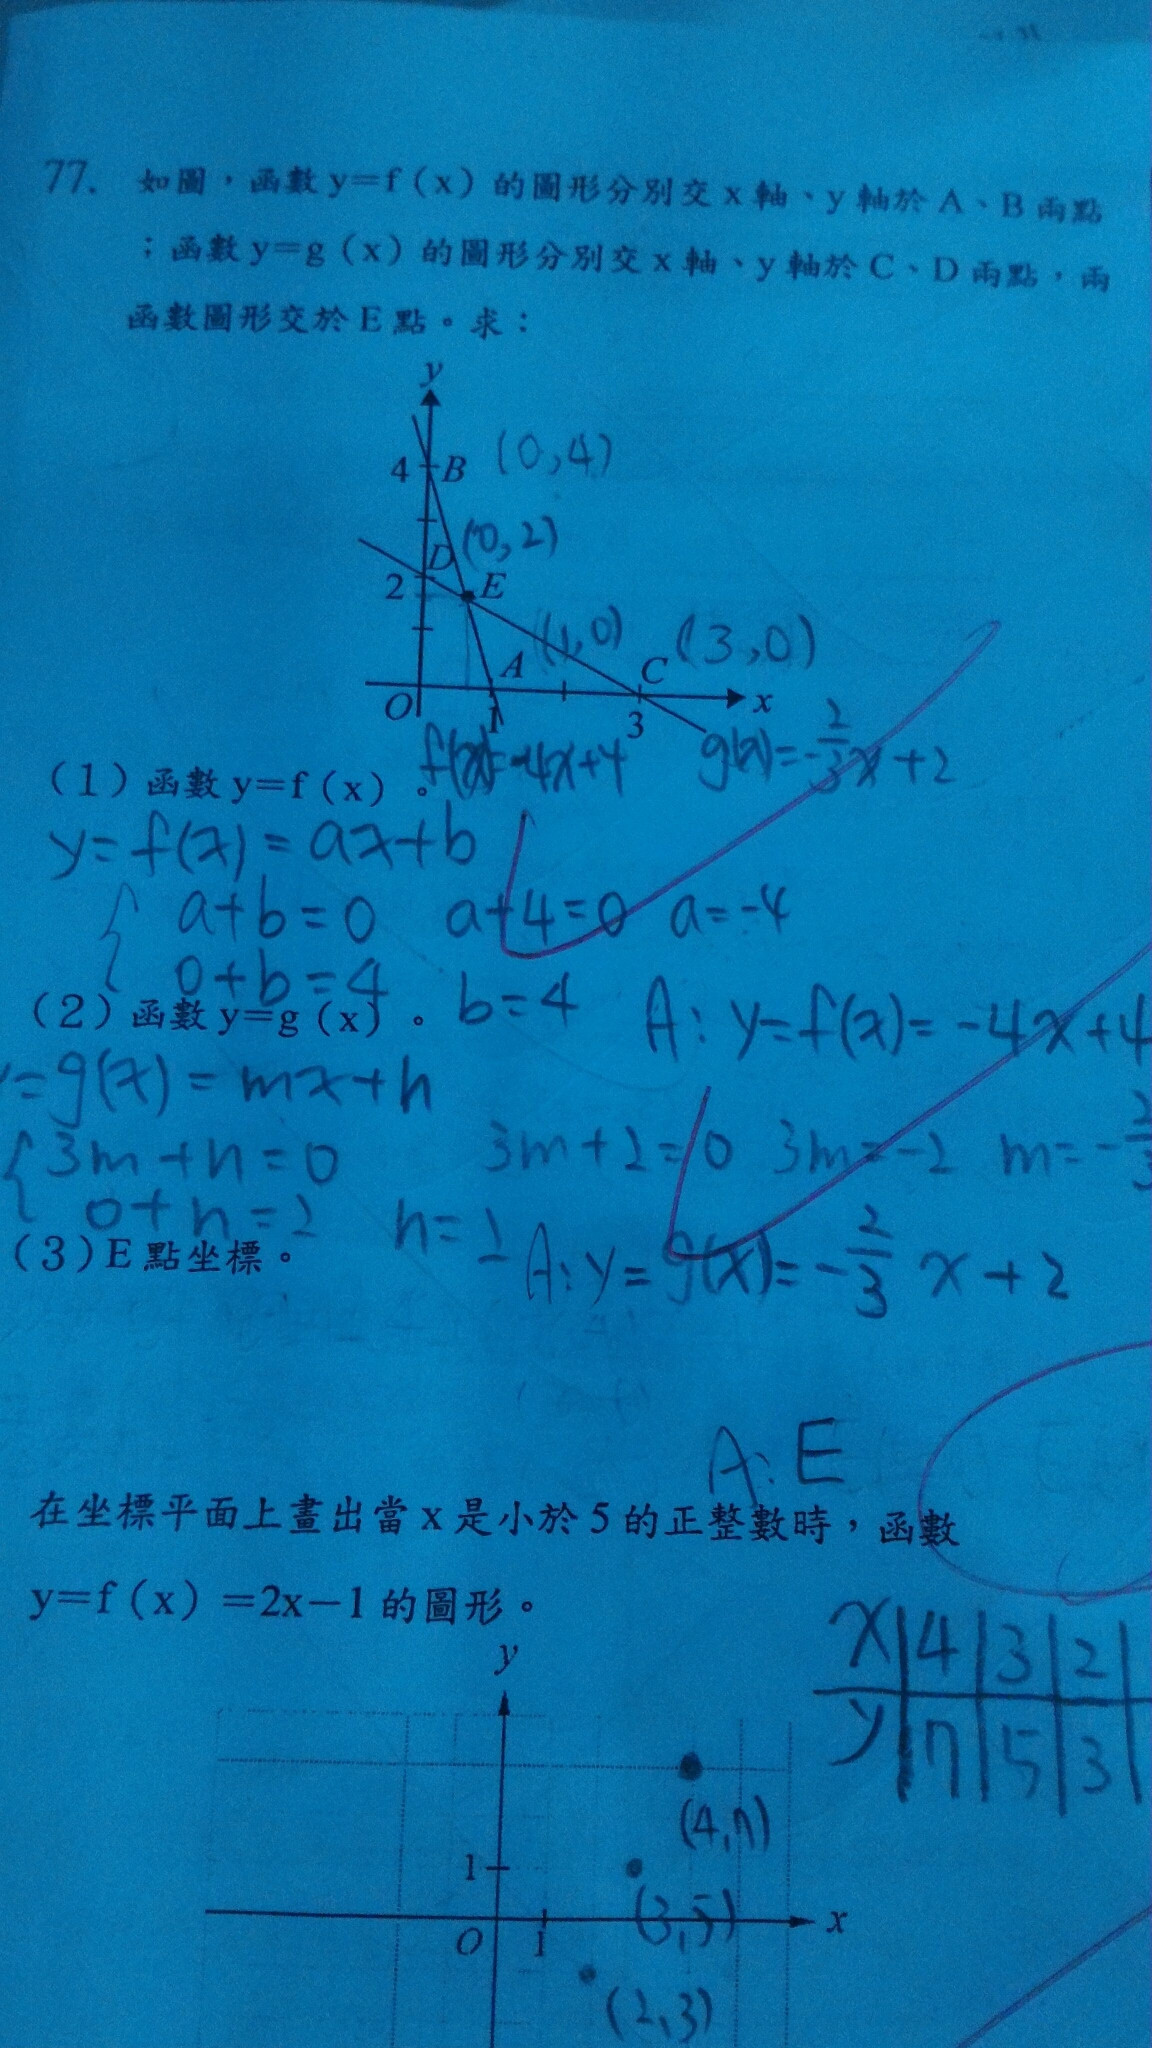 77. 如圖，函數 y=f(x) 的圖形分別交 x 軸、y 軸於 A、B 兩點
；函數 y=g(x) 的圖形分別交 x 軸、y 軸於 C、D 兩點，兩
函數圖形交於 E 點。求：
y
4 B (0,4)
D (0,2)
2 E
A (1,0) C (3,0)
O 1 3 x
f(x)=-4x+4 g(x)=-2/3x+2
(1) 函數 y=f(x)。
y=f(x)=ax+b
a+b=0 a+4=0 a=-4
0+b=4 b=4
(2) 函數 y=g(x)。 A: y=f(x)=-4x+4
=g(x)=mx+n
3m+n=0 3m+2=0 3m=-2 m=-2/3
0+n=2 n=2
(3) E 點坐標。 A: y=g(x)=-2/3 x+2
A: E
在坐標平面上畫出當 x 是小於 5 的正整數時，函數
y=f(x)=2x-1 的圖形。
x 4 3 2
y 7 5 3
y
(4,7)
1
(3,5)
O 1 x
(2,3)